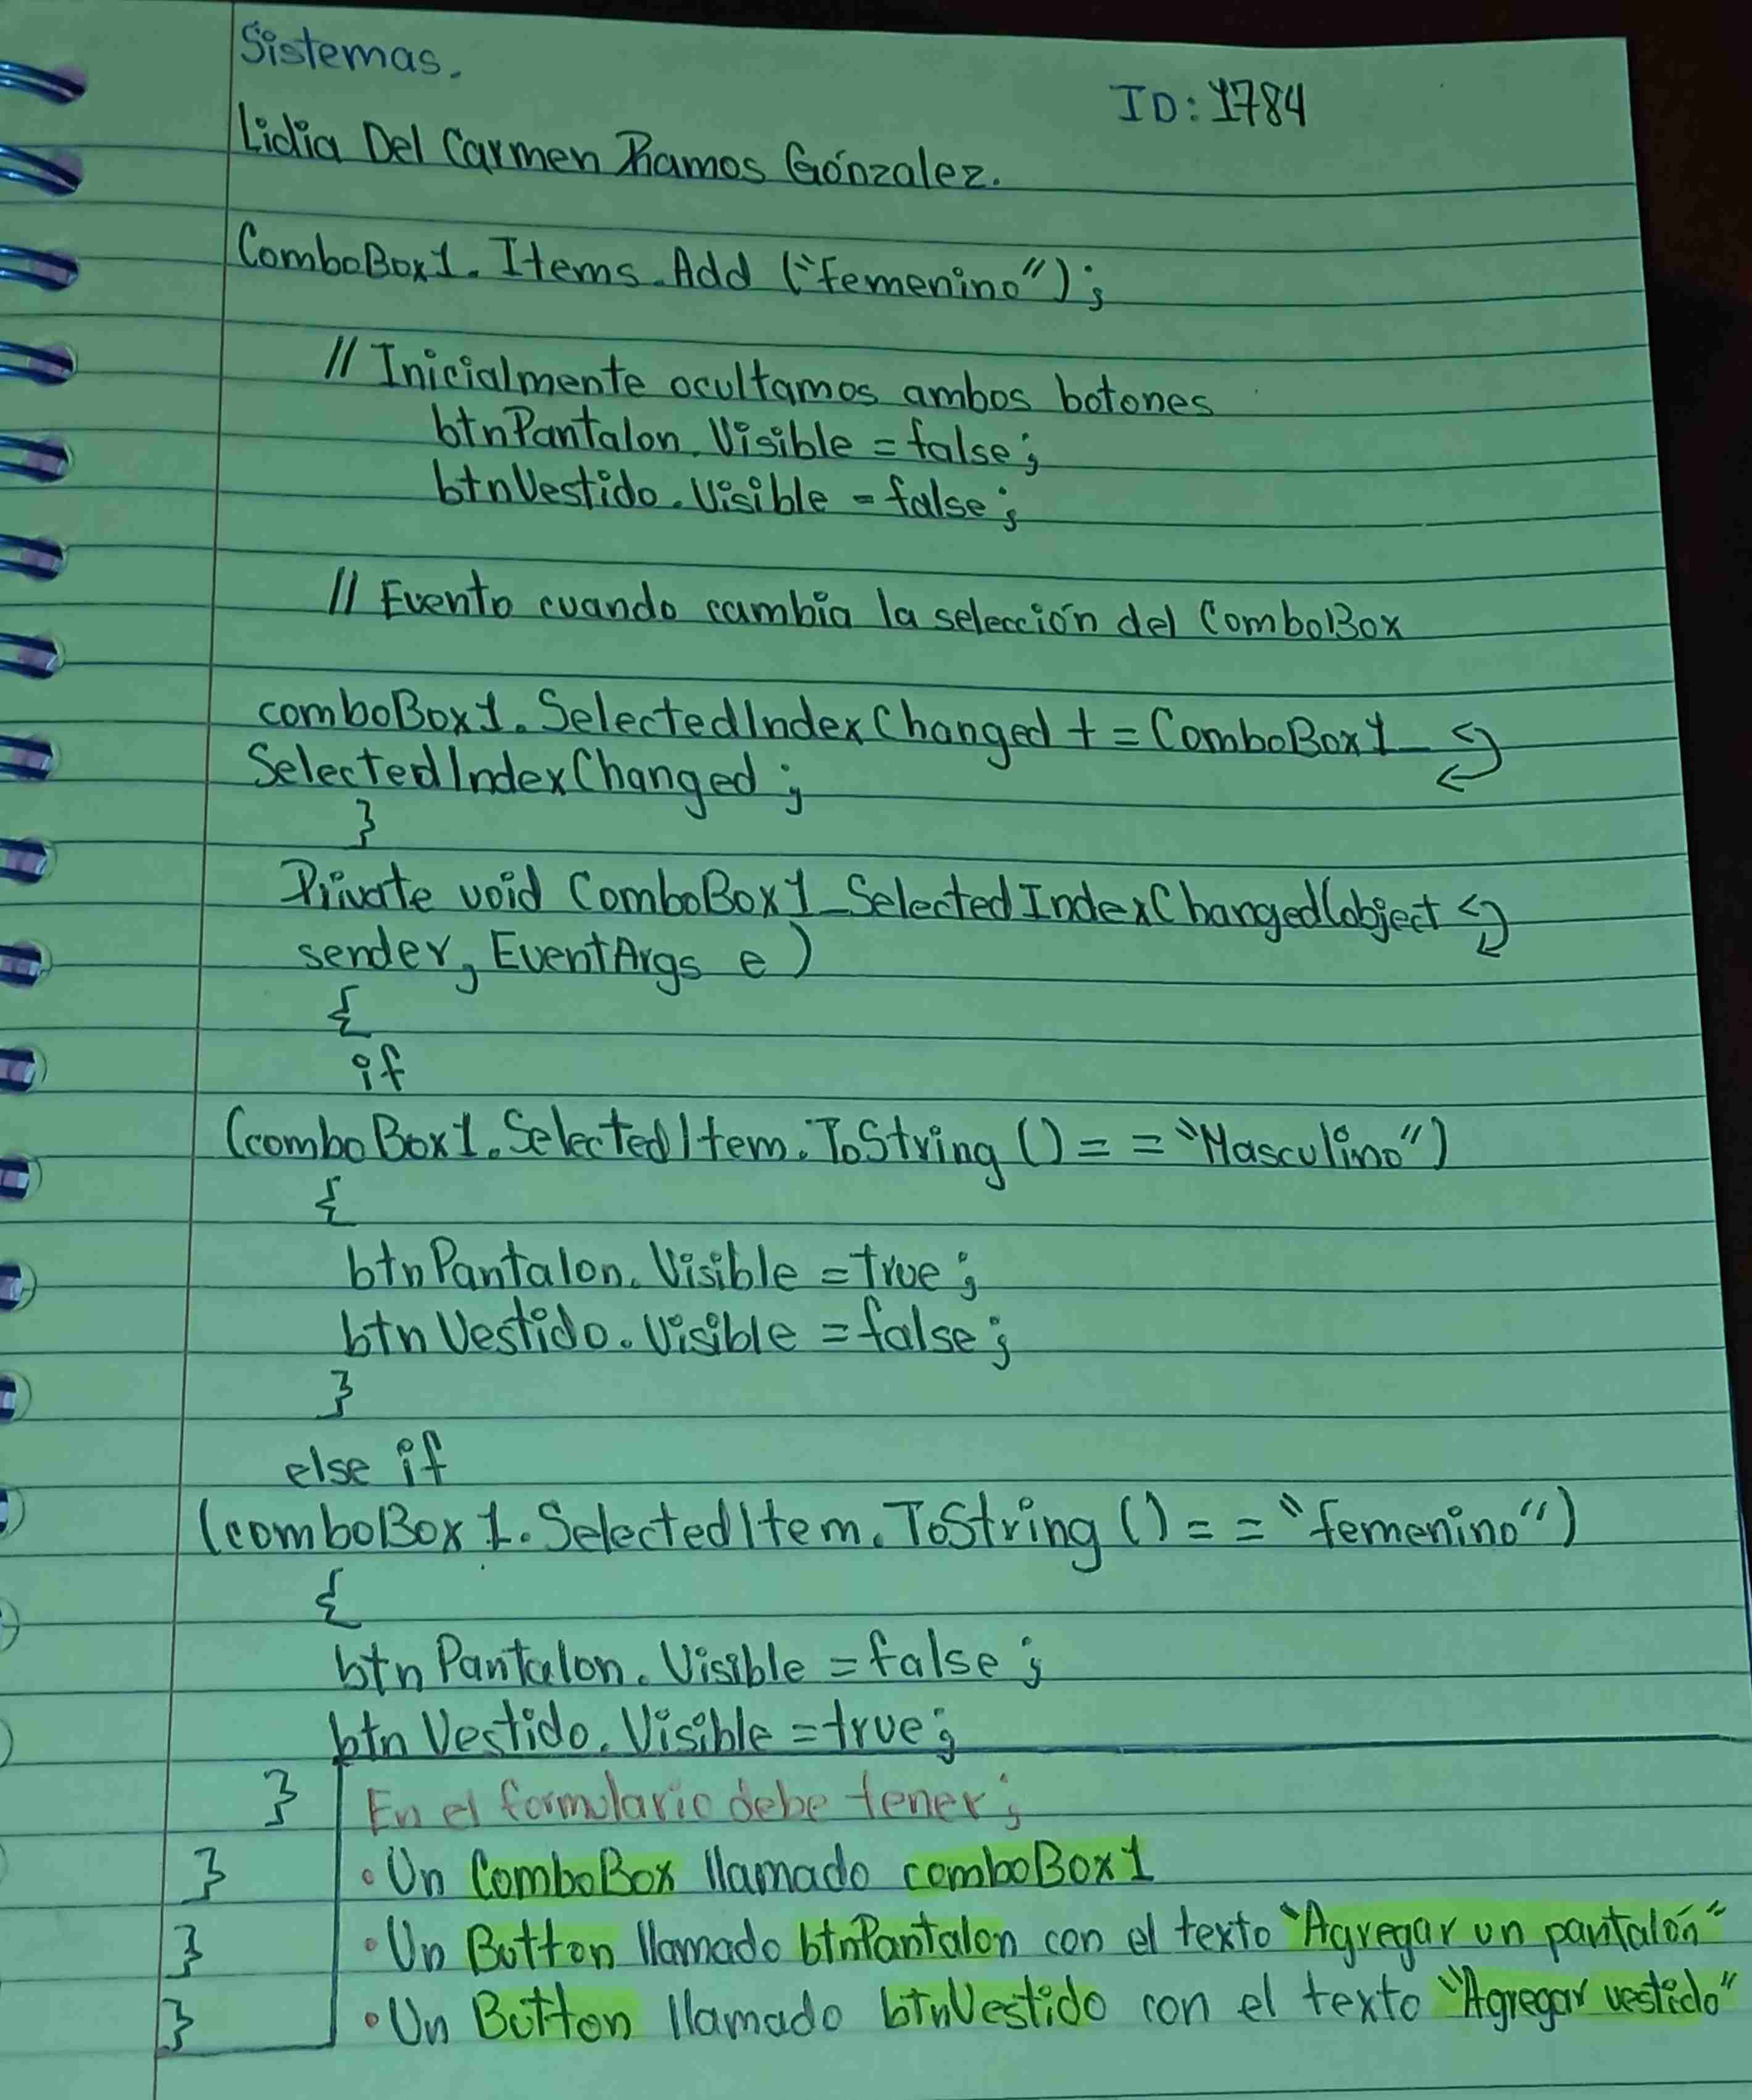 Sistemas.
ID: 1784
Lidia Del Carmen Ramos Gónzalez.
ComboBox1. Items.Add ("femenino");
// Inicialmente ocultamos ambos botones
btnPantalon. Visible = false;
btnVestido. Visible = false;
// Evento cuando cambia la selección del ComboBox
comboBox1. SelectedIndexChanged += ComboBox1_
SelectedIndexChanged;
}
Private void ComboBox1_SelectedIndexChanged(object
sender, EventArgs e )
{
if
(comboBox1.SelectedItem.ToString () = = "Masculino")
{
btnPantalon. Visible = true;
btnVestido. Visible = false;
}
else if
(comboBox1.SelectedItem.ToString () = = "femenino")
{
btnPantalon. Visible = false;
btnVestido. Visible = true;
} En el formulario debe tener;
} • Un ComboBox llamado comboBox1
} • Un Button llamado btnPantalon con el texto "Agregar un pantalón"
} • Un Button llamado btnVestido con el texto "Agregar vestido"